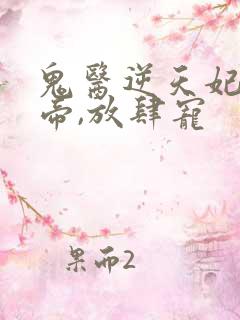 鬼醫逆天妃
帝,放肆寵
果而2